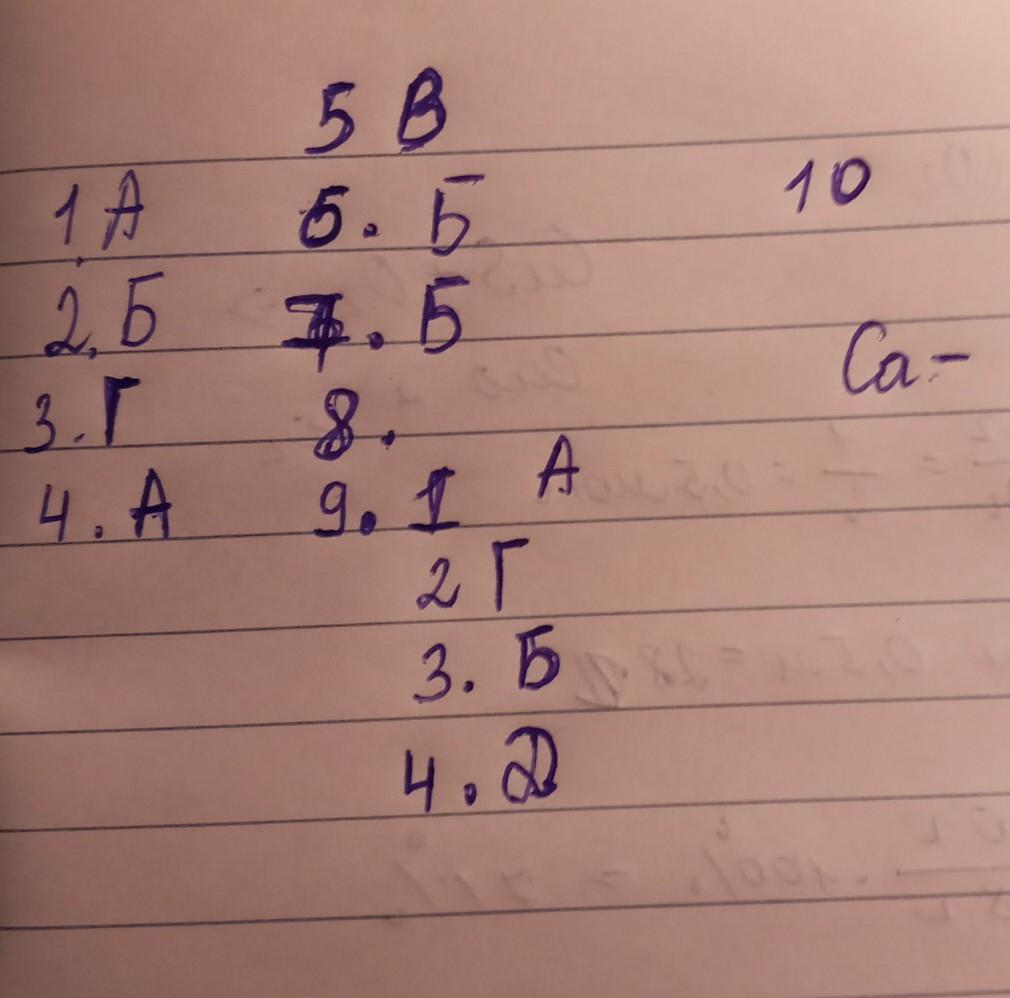 5 В
1 А
2. Б
3. Г
4. А
6. Б
7. Б
8.
9. 1 А
2 Г
3. Б
4. Д
10
Ca -